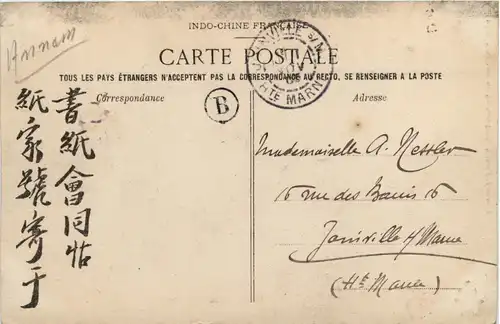 Annam
INDO-CHINE
CARTE POSTALE
TOUS LES PAYS ÉTRANGERS N'ACCEPTENT PAS LA CORRESPONDANCE AU RECTO, SE RENSEIGNER A LA POSTE
Correspondance
Adresse
B
JOINVILLE S/M
HTE MARNE
書紙會同怗
紙家號寄于
Mademoiselle A. Nessler
16 rue des Bains 16
Joinville s/ Marne
(Hte Marne)